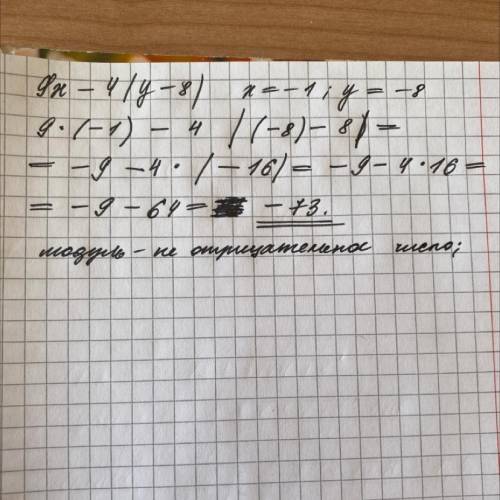 9x - 4|y-8| x=-1; y = -8
9·(-1) - 4 |(-8)-8| =
= -9 -4·|-16| = -9-4·16 =
= -9-64= -73.
модуль - не отрицательное число;